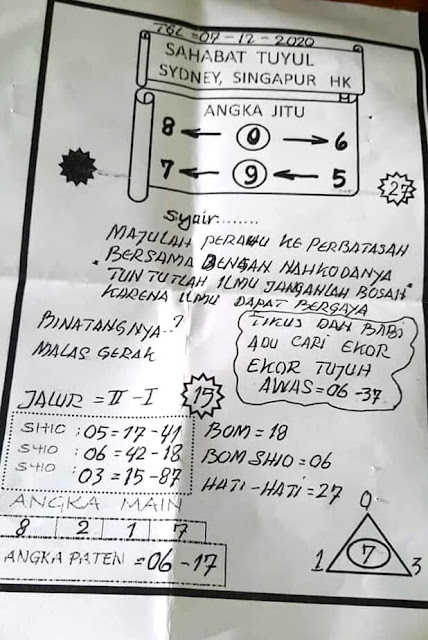 TGL = 07-12-2020
SAHABAT TUYUL
SYDNEY, SINGAPUR HK
ANGKA JITU
8 ← 0 → 6
7 ← 9 ← 5
27
Syair........
MAJULAH PERAHU KE PERBATASAN
BERSAMA DENGAN NAHKODANYA
TUNTUTLAH ILMU JANGANLAH BOSAN
KARENA ILMU DAPAT BERGAYA
BINATANGNYA..?
MALAS GERAK
TIKUS DAN BABI
ADU CARI EKOR
EKOR TUJUH
AWAS = 06 - 37
JALUR = II - I
15
SHIO : 05 = 17 - 41
SHIO : 06 = 42 - 18
SHIO : 03 = 15 - 87
BOM = 18
BOM SHIO = 06
HATI - HATI = 27
ANGKA MAIN
8 2 1 7
ANGKA PATEN = 06 - 17
0
7
1 3